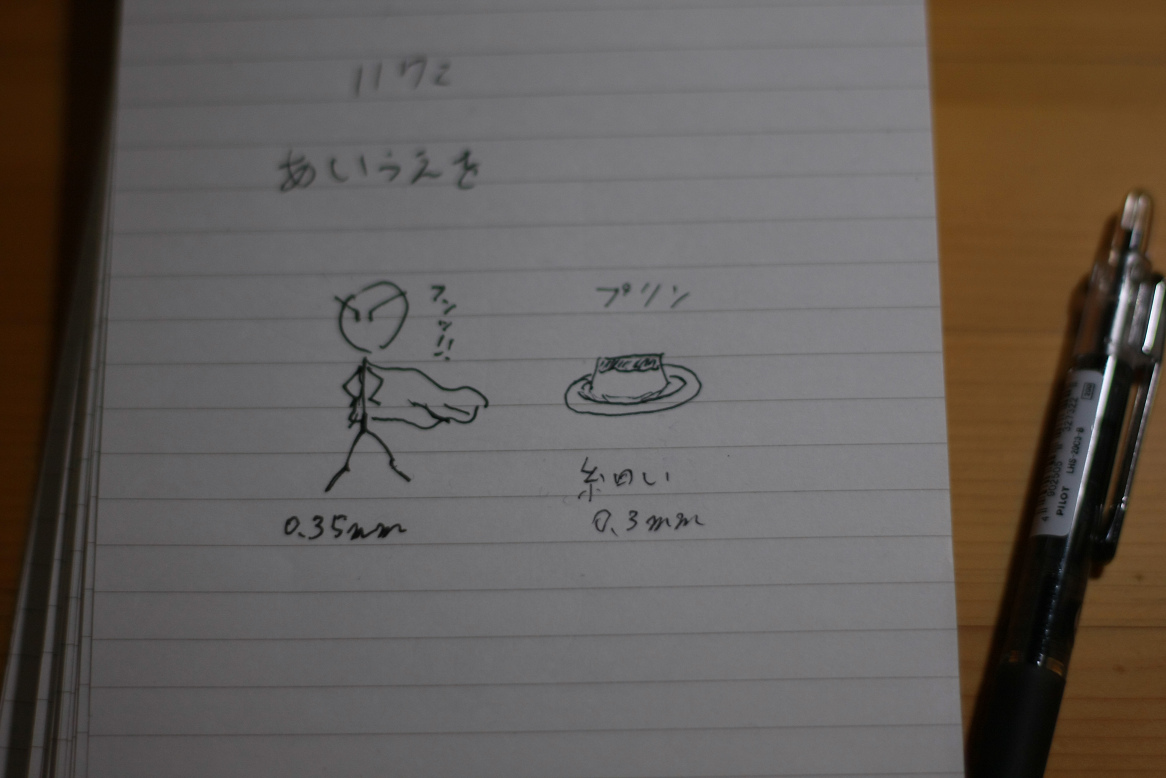 あいうえを
フンッ!!
プリン
細い
0.35mm
0.3mm
PILOT LHS-20C3-B